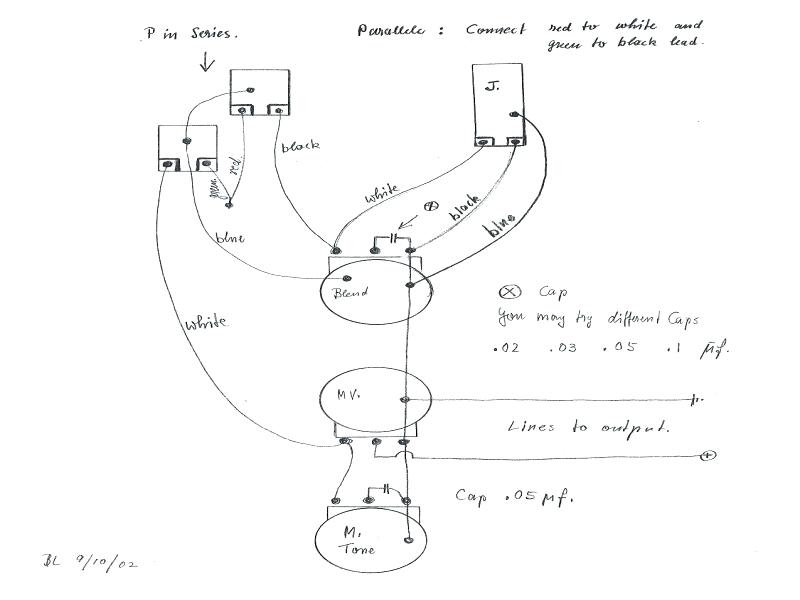 P in Series.
Parallele : Connect red to white and
green to black lead.
J.
black
red
green
white
ⓧ
black
blue
blue
Blend
ⓧ Cap
You may try different Caps
.02 .03 .05 .1 µf.
white
MV.
Lines to output.
Cap .05 µf.
M.
Tone
BL 9/10/02